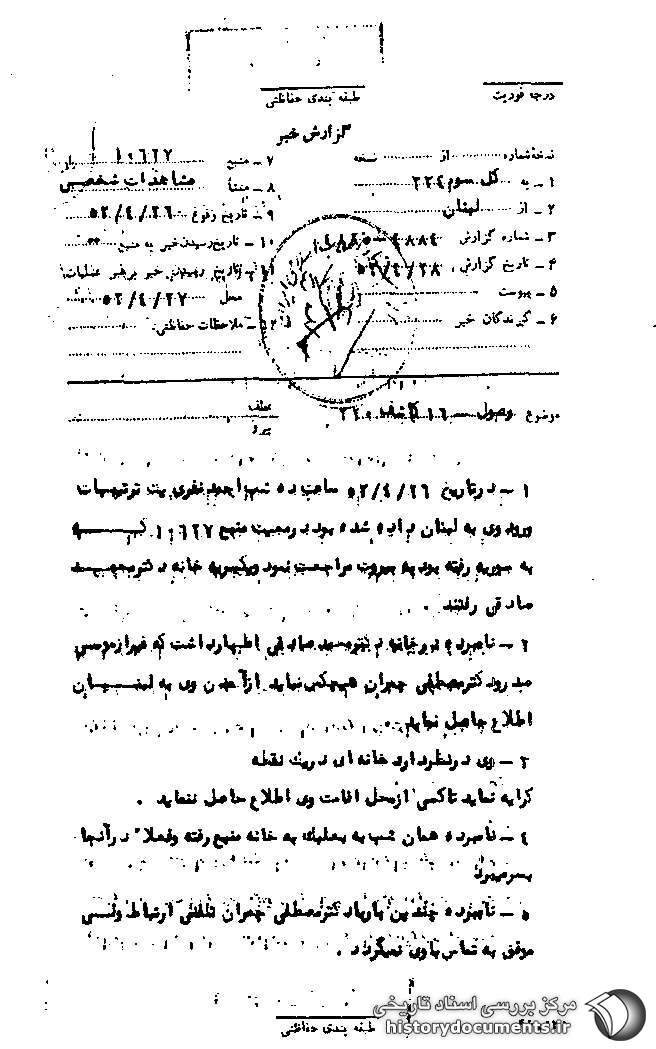 درجه فوریت
طبقه بندی حفاظتی
گزارش خبر
نسخه شماره از نسخه
۱ – به کل سوم ۳۳۴
۲ – از لبنان
۳ – شماره گزارش
۴ – تاریخ گزارش ۵۲/۴/۲۸
۵ – پیوست
۶ – گیرندگان خبر
۷ – منبع ۱۰۶۲۷
۸ – منشأ مشاهدات شخصیی
۹ – تاریخ وقوع ۵۲/۴/۲۶
۱۰ – تاریخ رسیدن خبر به منبع
۱۱ – تاریخ رسیدن خبر برهبر عملیات
محل ۵۲/۴/۲۷
۱۲ – ملاحظات حفاظتی
موضوع وصول
عطف
پیرو
۱ – در تاریخ ۵۲/۴/۲۶ ساعت ده شب احمد نفری یت ترتیبات
ورود وی به لبنان داده شده بود در معیت منبع ۱۰۶۲۷ که
به سوریه رفته بود به بیروت مراجعت نمود و یکسره خانه دکتر
صادقی رفتند .
۲ – نامبرده در خانه دکتر صادقی اظهار داشت که غیر از موسی
صدر و دکتر مصطفی چمران هیچکس نباید از آمدن وی به لبنان
اطلاع حاصل نماید .
۳ – وی در نظر دارد خانه ای در یک نقطه
کرایه نماید تا کسی از محل اقامت وی اطلاع حاصل ننماید .
۴ – نامبرده همان شب به بعلبک به خانه منبع رفته و فعلا" در آنجا
بسر میبرد
۵ – نامبرده چندین بار با دکتر مصطفی چمران تلفنی ارتباط ولی
موفق به تماس با وی نمیگردد .
طبقه بندی حفاظتی
مرکز بررسی اسناد تاریخی
historydocuments.ir